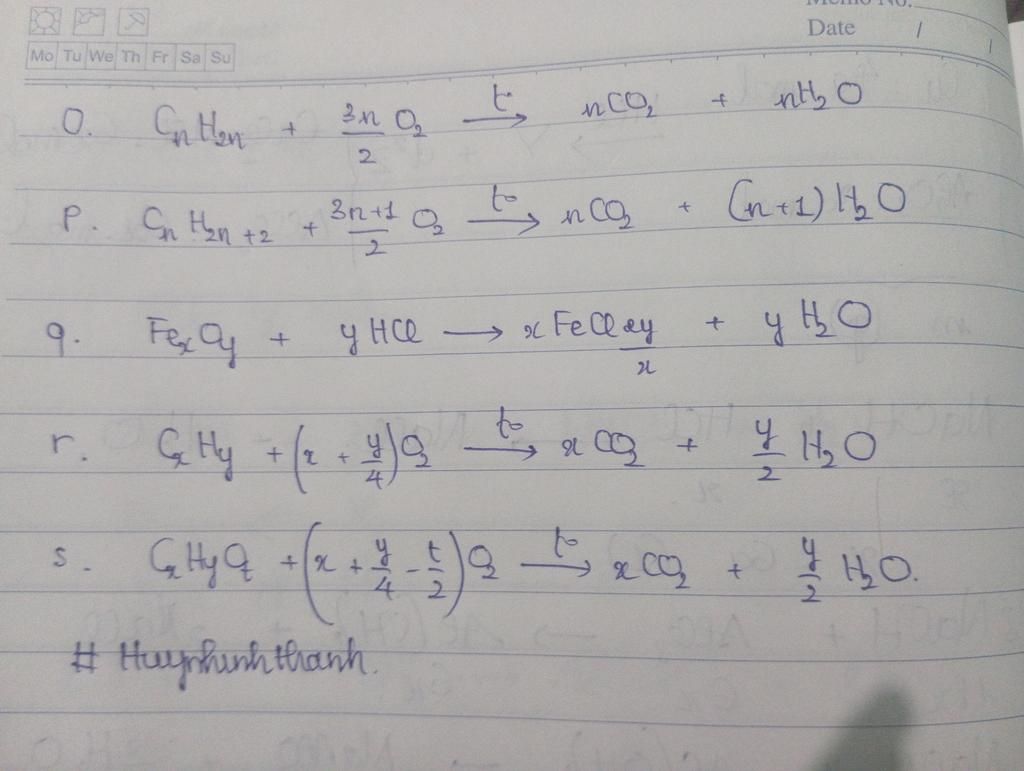 Memo No.
Date / /
Mo Tu We Th Fr Sa Su
o. CnH2n + 3n/2 O2 →(t°) nCO2 + nH2O
p. CnH2n+2 + 3n+1/2 O2 →(t°) nCO2 + (n+1)H2O
q. FexOy + yHCl → xFeCl2y/x + yH2O
r. CxHy + (x + y/4)O2 →(t°) xCO2 + y/2 H2O
s. CxHyOt + (x + y/4 - t/2)O2 →(t°) xCO2 + y/2 H2O.
# Huynhinhthanh.